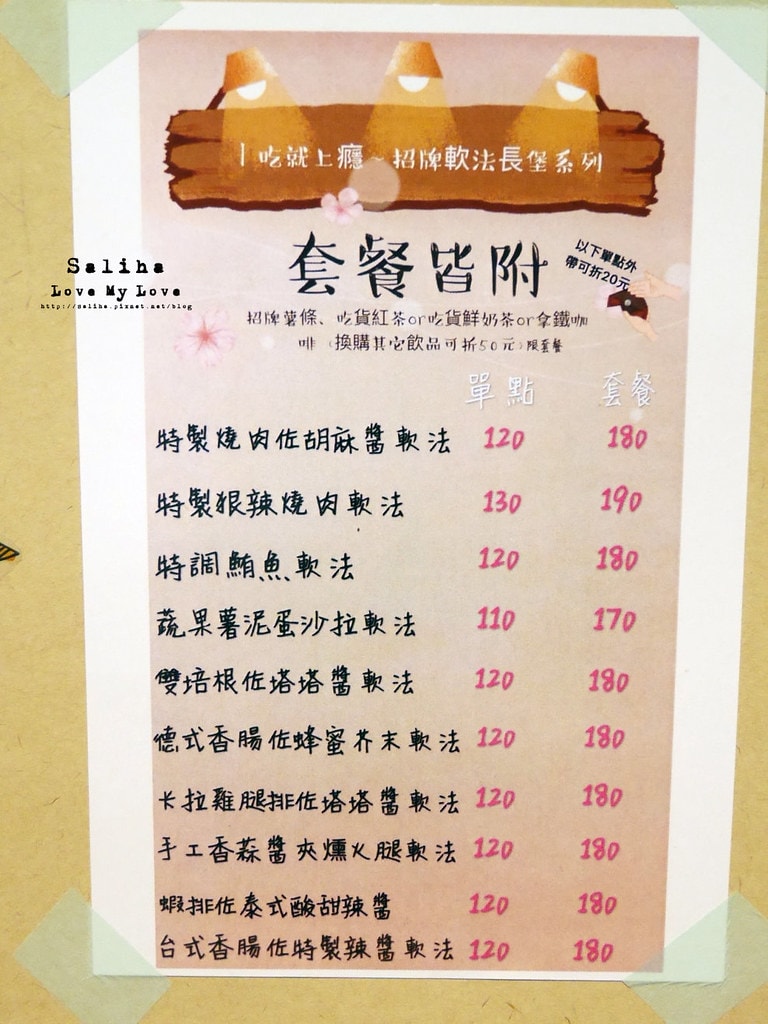 吃就上癮~招牌軟法長堡系列
套餐皆附
以下單點外
帶可折20元
招牌薯條、吃貨紅茶or吃貨鮮奶茶or拿鐵咖
啡(換購其它飲品可折50元)限套餐
Saliha
Love My Love
http://saliha.pixnet.net/blog
單點 套餐
特製燒肉佐胡麻醬軟法 120 180
特製狠辣燒肉軟法 130 190
特調鮪魚軟法 120 180
蔬果薯泥蛋沙拉軟法 110 170
雙培根佐塔塔醬軟法 120 180
德式香腸佐蜂蜜芥末軟法 120 180
卡拉雞腿排佐塔塔醬軟法 120 180
手工香蒜醬夾燻火腿軟法 120 180
蝦排佐泰式酸甜辣醬 120 180
台式香腸佐特製辣醬軟法 120 180